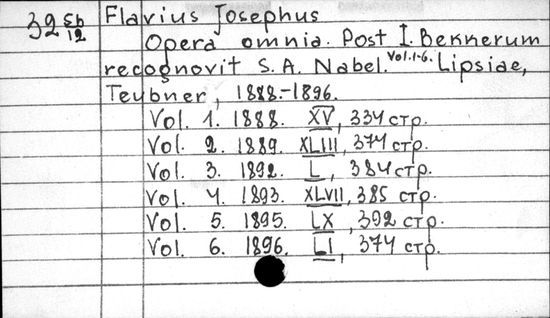 32 5b/12 Flavius Josephus
Opera omnia. Post I. Bekkerum
recognovit S. A. Nabel. Vol. 1-6. Lipsiae,
Teubner, 1888.-1896.
Vol. 1. 1888. XV, 334 стр.
Vol. 2. 1889. XLIII, 374 стр.
Vol. 3. 1892. L, 384 стр.
Vol. 4. 1893. XLVII, 385 стр.
Vol. 5. 1895. LX, 392 стр.
Vol. 6. 1896. LI, 374 стр.